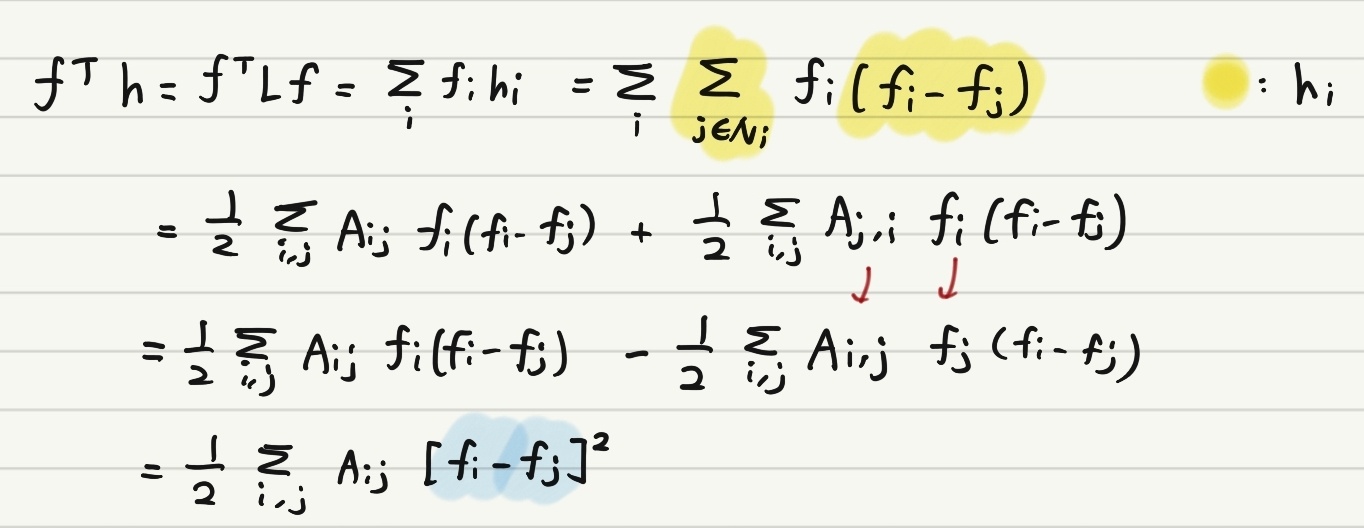 f^T h = f^T L f = Σ_i f_i h_i = Σ_i Σ_{j∈N_i} f_i (f_i - f_j) : h_i
= 1/2 Σ_{i,j} A_{ij} f_i (f_i - f_j) + 1/2 Σ_{i,j} A_{j,i} f_i (f_i - f_j)
↓ ↓
= 1/2 Σ_{i,j} A_{ij} f_i (f_i - f_j) - 1/2 Σ_{i,j} A_{i,j} f_j (f_i - f_j)
= 1/2 Σ_{i,j} A_{ij} [f_i - f_j]^2